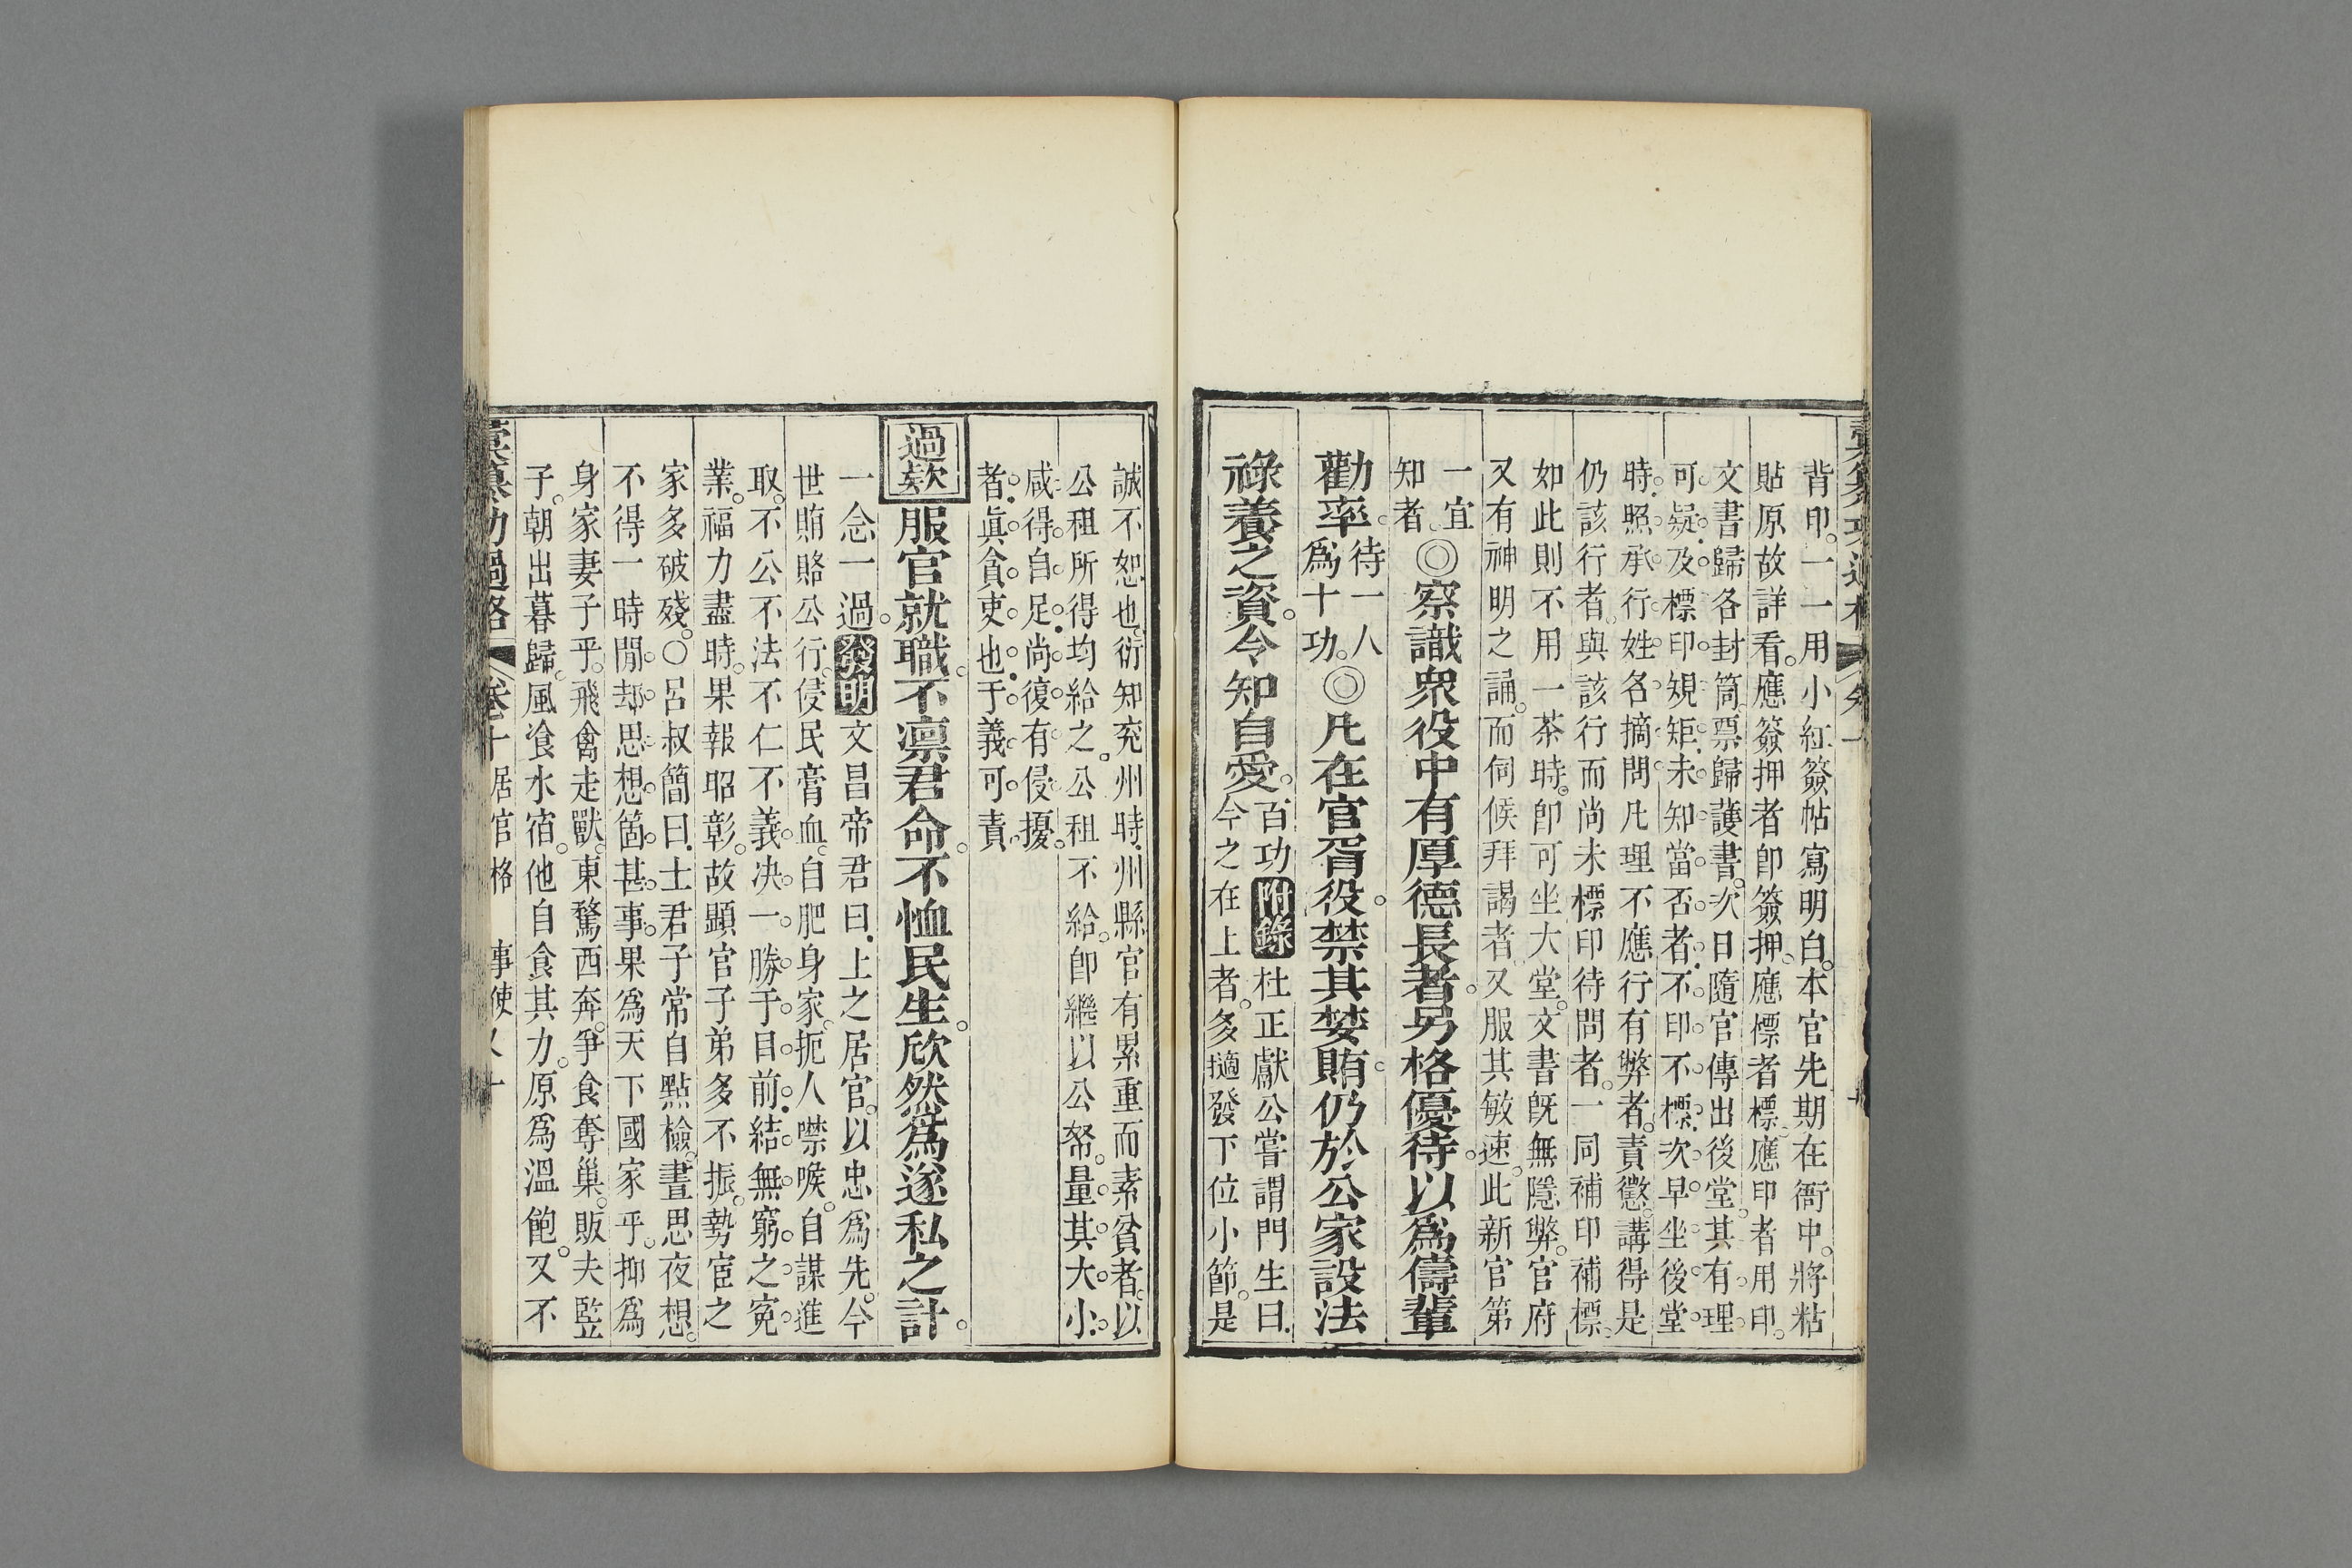 背印。一一用小紅簽帖寫明白。本官先期在衙中。將粘
貼原故詳看。應簽押者卽簽押。應標者標。應印者用印。
文書歸各封筒。票歸護書。次日隨官傳出後堂。其有理
可疑。及標印規矩。未知當否者。不印不標。次早坐後堂
時。照承行姓名摘問。凡理不應行有弊者。責懲。講得是
仍該行者。與該行而尚未標印待問者。一同補印補標。
如此則不用一茶時。卽可坐大堂。文書旣無隱弊。官府
又有神明之誦。而伺候拜謁者。又服其敏速。此新官第
一宜
知者。◎察識衆役中有厚德長者。另格優待。以爲儔輩
勸率。待一人
爲十功。◎凡在官胥役。禁其婪賄。仍於公家設法
祿養之資。令知自愛。百功附錄杜正獻公嘗謂門生曰.
今之在上者。多擿發下位小節。是
誠不恕也。衍知兗州時.州縣官有累重而素貧者。以
公租所得均給之。公租不給。卽繼以公帑。量其大小.
咸得自足.尚復有侵擾。
者.眞貪吏也.于義可責.
過款服官就職。不凛君命。不恤民生。欣然爲遂私之計。
一念一過。發明文昌帝君曰.上之居官。以忠爲先。今
世賄賂公行。侵民膏血。自肥身家。扼人噤喉。自謀進
取。不公不法不仁不義。决一勝于目前.結無窮之寃
業。福力盡時。果報昭彰。故顯官子弟多不振。勢宦之
家多破殘。○呂叔簡曰.士君子常自點檢。晝思夜想。
不得一時閒。却思想箇甚事。果爲天下國家乎。抑爲
身家妻子乎。飛禽走獸。東驚西奔。爭食奪巢。販夫監
子。朝出暮歸。風飡水宿。他自食其力。原爲溫飽。又不
彙纂功過格 卷十 居官格 事使 又十